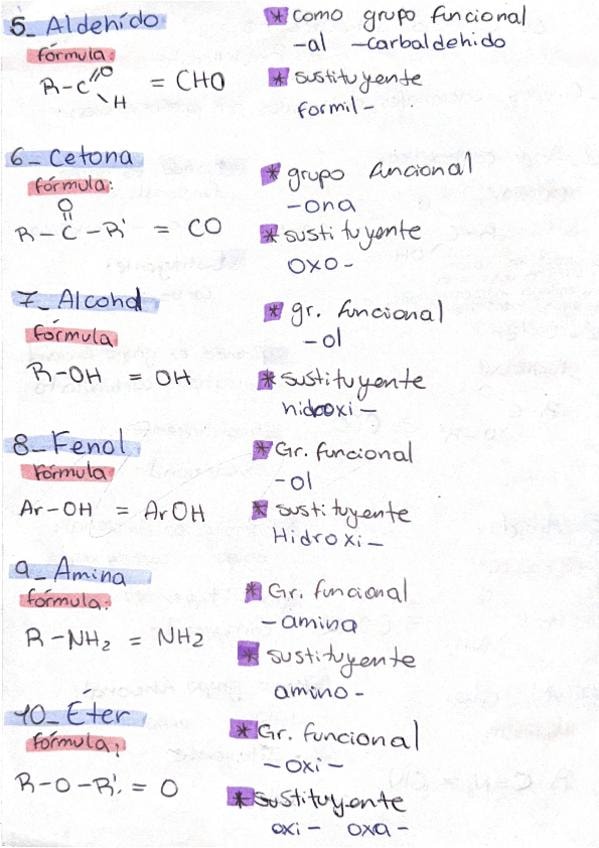 5_ Aldehído
fórmula:
R-C=O
H = CHO
* como grupo funcional
-al -carbaldehido
* sustituyente
formil-
6_ Cetona
fórmula:
O
R-C-R' = CO
* grupo funcional
-ona
* sustituyente
oxo-
7_ Alcohol
fórmula
R-OH = OH
* gr. funcional
-ol
* sustituyente
hidroxi-
8_ Fenol
fórmula
Ar-OH = ArOH
* Gr. funcional
-ol
* sustituyente
Hidroxi-
9_ Amina
fórmula:
R-NH2 = NH2
* Gr. funcional
-amina
* sustituyente
amino-
10_ Éter
fórmula:
R-O-R' = O
* Gr. funcional
-oxi-
* sustituyente
oxi- oxa-